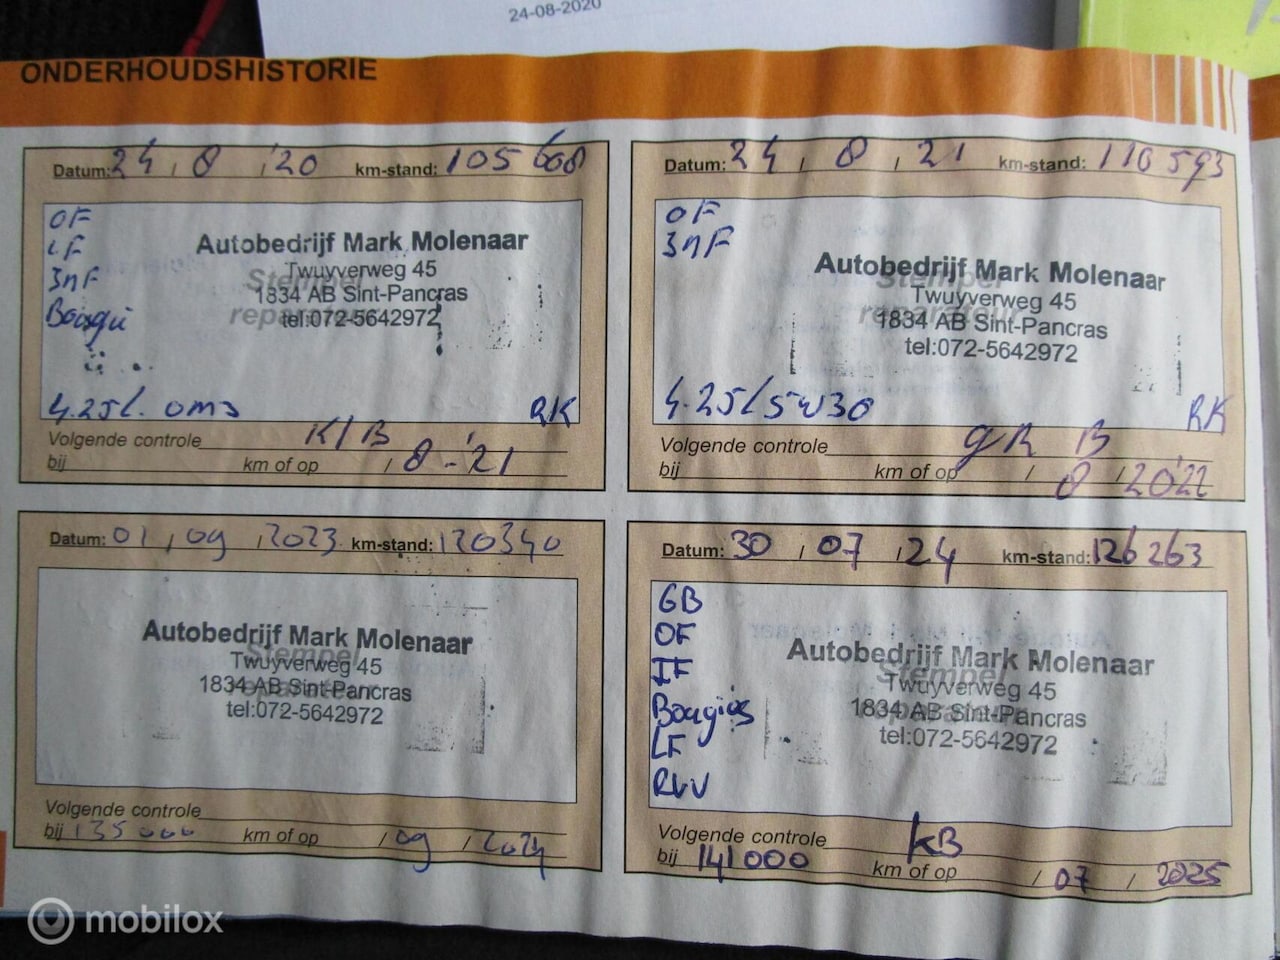 24-08-2020
ONDERHOUDSHISTORIE
Datum: 24 / 8 / '20 km-stand: 105 608
OF
LF
InF
Bougie
Autobedrijf Mark Molenaar
Twuyverweg 45
1834 AB Sint-Pancras
tel:072-5642972
Stempel
4.25L. OM3 RK
Volgende controle K/B
bij km of op / 8 - '21
Datum: 24 / 8 / 21 km-stand: 110 593
OF
InF
Autobedrijf Mark Molenaar
Twuyverweg 45
1834 AB Sint-Pancras
tel:072-5642972
Stempel
reparateur
4.25L 5W30 RK
Volgende controle gR B
bij km of op / 8 / 2022
Datum: 01 / 09 / 2023 km-stand: 120340
Autobedrijf Mark Molenaar
Twuyverweg 45
1834 AB Sint-Pancras
tel:072-5642972
Stempel
Volgende controle
bij 135000 km of op / 09 / 2024
Datum: 30 / 07 / 24 km-stand: 126 263
GB
OF
IF
Bougies
LF
RVV
Autobedrijf Mark Molenaar
Twuyverweg 45
1834 AB Sint-Pancras
tel:072-5642972
Stempel
Volgende controle KB
bij 141000 km of op / 07 / 2025
mobilox